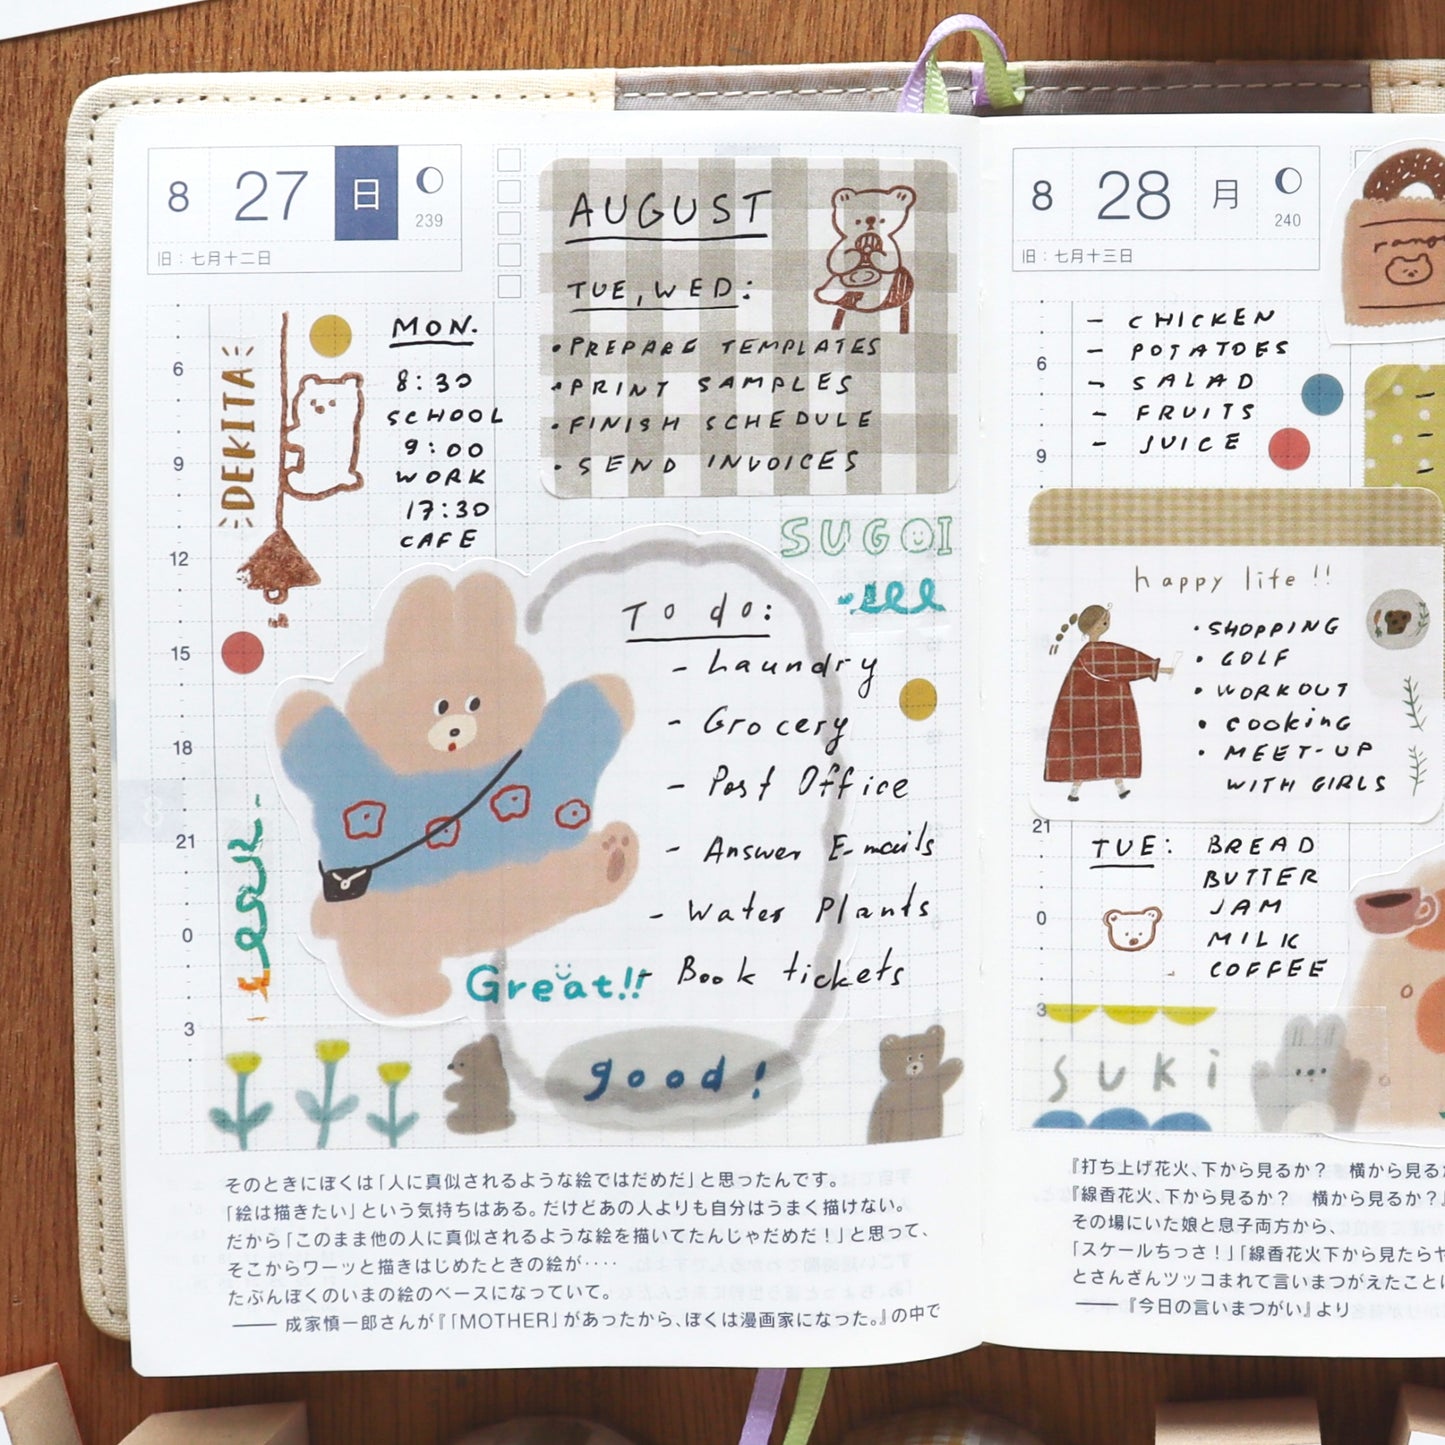 8 27 日 239
旧：七月十二日
AUGUST
TUE, WED:
• PREPARE TEMPLATES
• PRINT SAMPLES
• FINISH SCHEDULE
• SEND INVOICES
DEKITA
MON.
8:30
SCHOOL
9:00
WORK
17:30
CAFE
6
9
12
15
18
21
0
3
SUGOI
To do:
- Laundry
- Grocery
- Post Office
- Answer E-mails
- Water Plants
- Book tickets
Great!!
good!
そのときにぼくは「人に真似されるような絵ではだめだ」と思ったんです。
「絵は描きたい」という気持ちはある。だけどあの人よりも自分はうまく描けない。
だから「このまま他の人に真似されるような絵を描いてたんじゃだめだ！」と思って、
そこからワーッと描きはじめたときの絵が‥‥
たぶんぼくのいまの絵のベースになっていて。
—— 成家慎一郎さんが『「MOTHER」があったから、ぼくは漫画家になった。』の中で
8 28 月 240
旧：七月十三日
- CHICKEN
- POTATOES
- SALAD
- FRUITS
- JUICE
6
9
happy life!!
• SHOPPING
• GOLF
• WORKOUT
• cooking
• MEET-UP
WITH GIRLS
21
0
3
TUE: BREAD
BUTTER
JAM
MILK
COFFEE
SUKi
『打ち上げ花火、下から見るか？　横から見る
『線香花火、下から見るか？　横から見るか？』
その場にいた娘と息子両方から、
「スケールちっさ！」「線香花火下から見たらヤ
とさんざんツッコまれて言いまつがえたことに
—— 『今日の言いまつがい』より